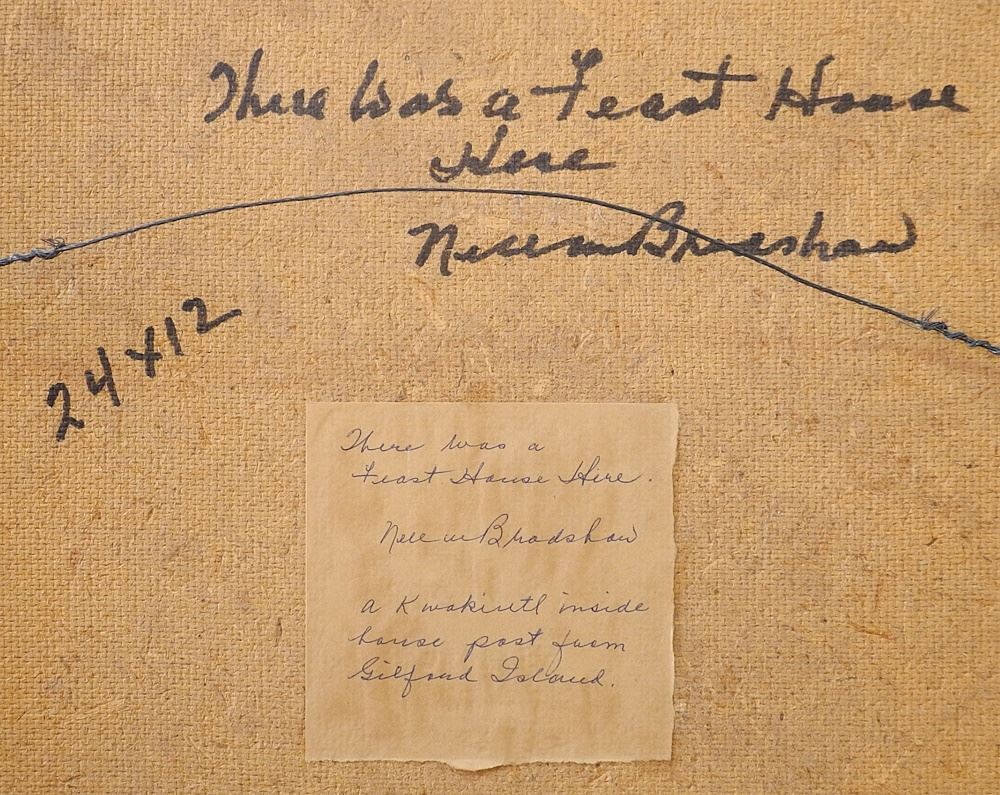 There Was a Feast House
Here
Nell m Bradshaw
24x12
There was a
Feast House Here.
Nell m Bradshaw
a Kwakiutl inside
house post from
Gilford Island.